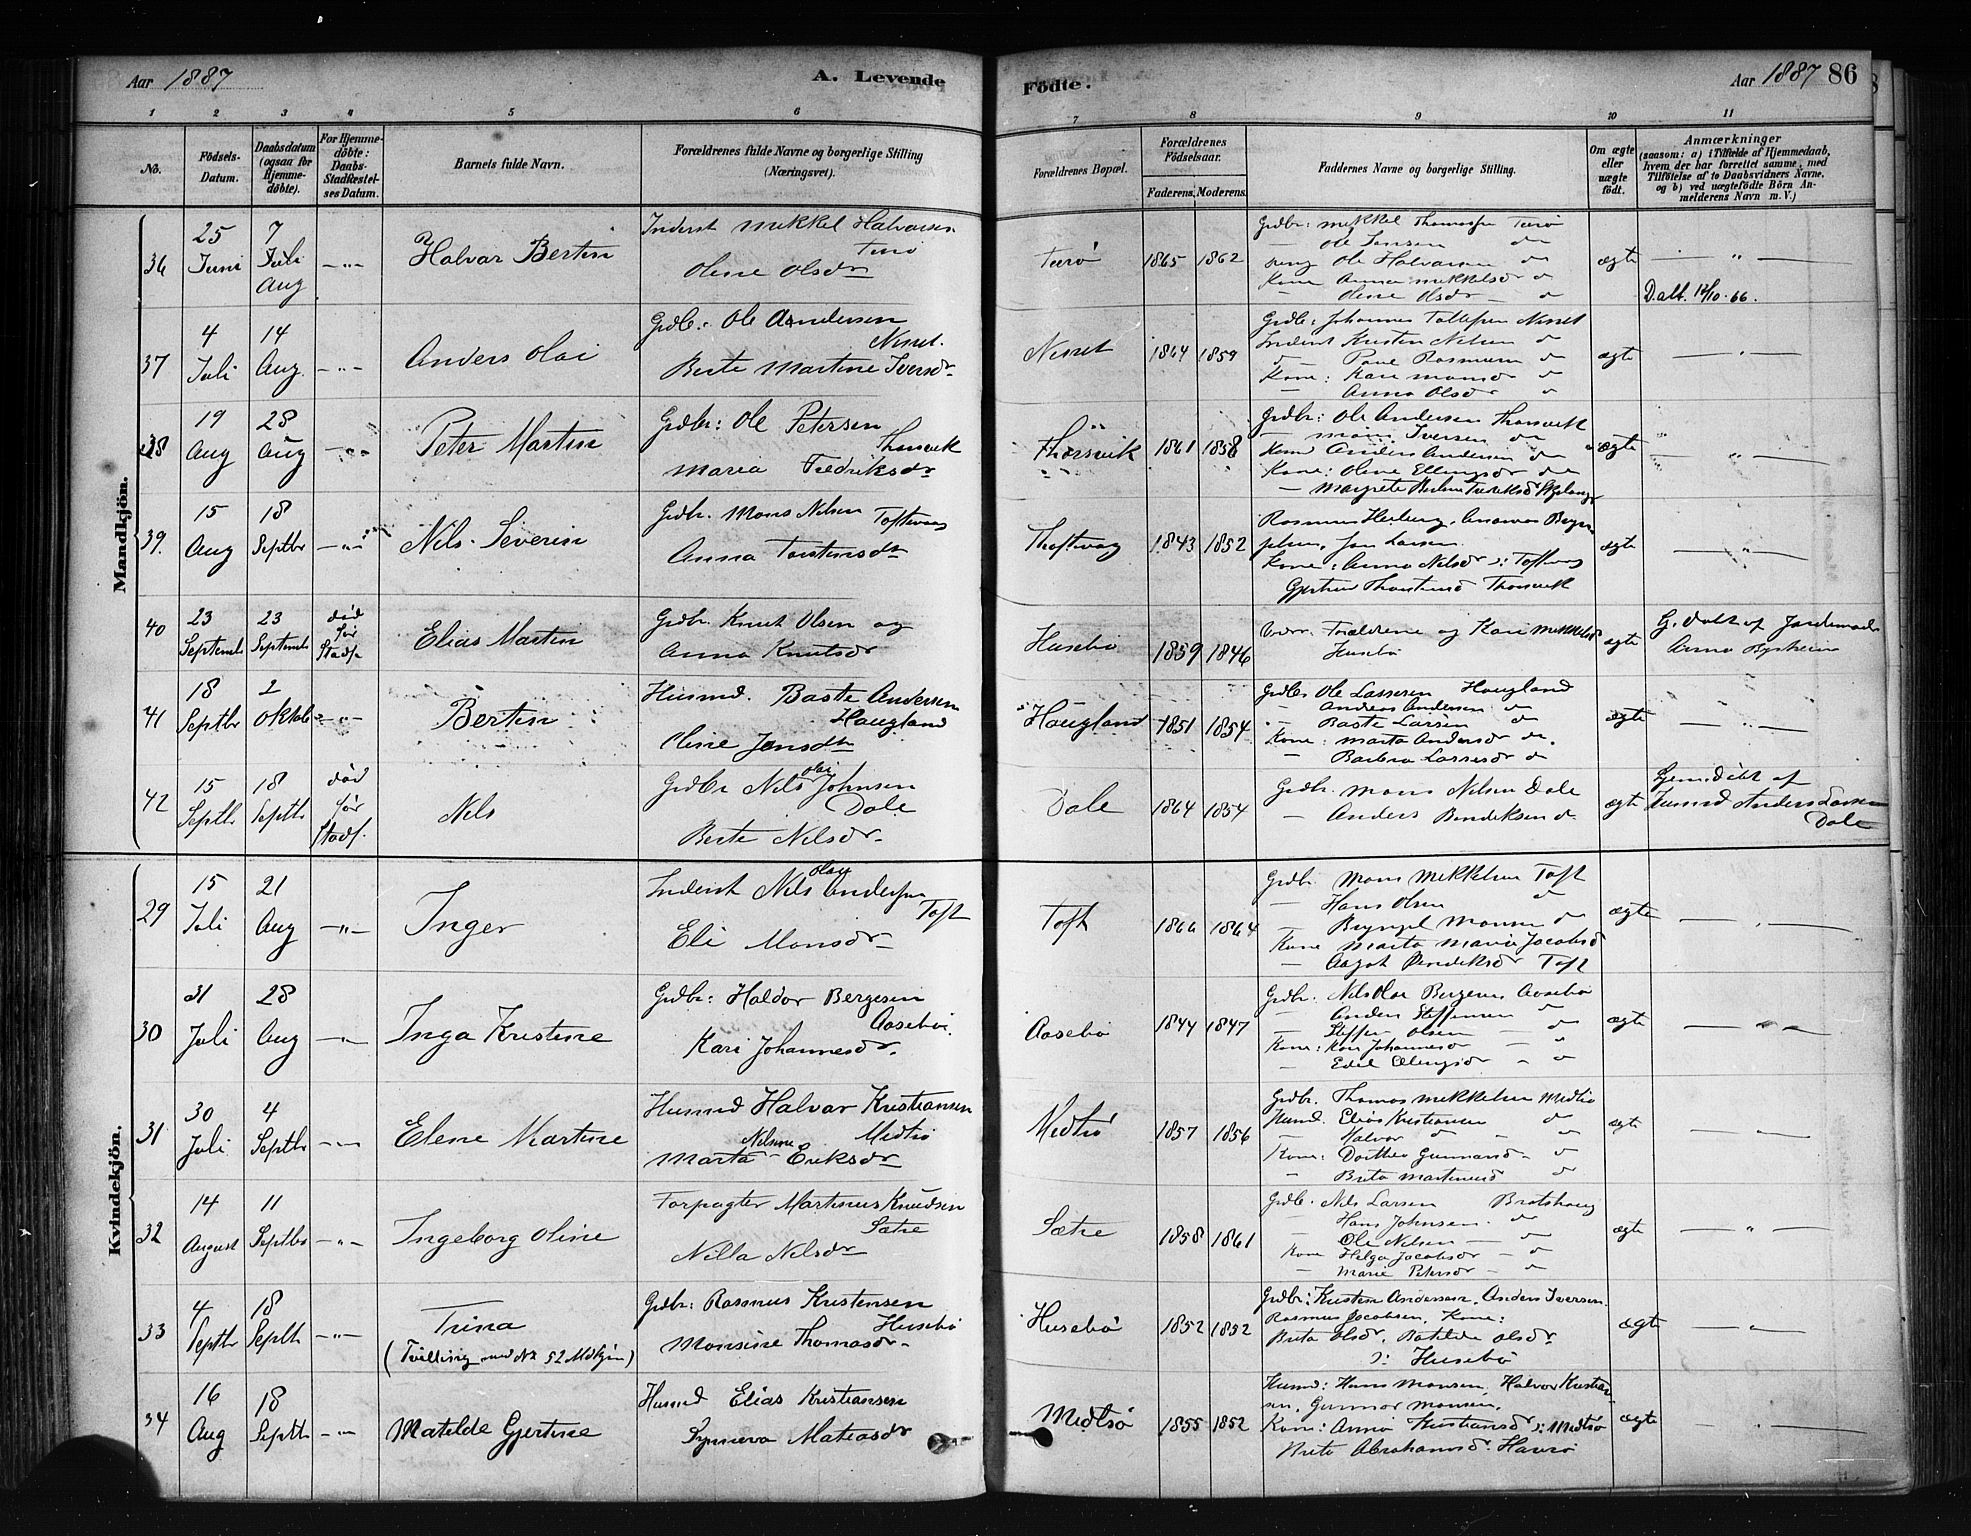 Aar 1887
A. Levende
Födte.
Aar 1887 86
1 2 3 4 5 6
7 8 9 10 11
No.
Födsels-Datum.
Daabsdatum (ogsaa for Hjemme-döbte).
For Hjemme-döbte: Daabs-Stadfæstel-ses Datum.
Barnets fulde Navn.
Forældrenes fulde Navne og borgerlige Stilling (Næringsvei).
Forældrenes Bopæl.
Forældrenes Födselsaar.
Faderens. Moderens.
Faddernes Navne og borgerlige Stilling.
Om ægte eller uægte födt.
Anmærkninger
(saasom: a) i Tilfælde af Hjemmedaab,
hvem der har forrettet samme, med
Tilföielse af to Daabsvidners Navne,
og b) ved uægtefödte Börn An-
melderens Navn m. V.)
Mandkjön.
36
25 Juni
7 Juli Aug
Halvar Bertin
Inderst Mikkel Halvorsen
Turö
Oline Olsdr
Turö
1865 1862
Grdbr: Mikkel Thomassen Turö
— Ole Jensen do
Ole Halvorsen do
Kone Anna Mikkelsdr do
— Oline Olsdr — do
ægte
— " —
Dalt. 12/10-66.
37
4 Juli
14 Aug.
Anders Olai
Grdb: Ole Andersen
Nesset.
Berte Martine Iversdr
Nesset
1864 1859
Grdb: Johannes Tollefsen Nesset
Inderst Kristen Nelsen do
Rasmussen do
Kone: Kari Monsdr do
— Anna Olsdr do
ægte
— " —
38
19 Aug
28 Aug
Peter Martin
Grdbr: Ole Petersen
Thorsvik
Maria Fredriksdr
Thorsvik
1861 1858
Grdbr: Ole Andersen Thorsvik
— Mons Iversen do
Anders Andersen do
Kone: Oline Ellingsdr do
— Margrete Fredriksdr
ægte
— " —
39.
15 Aug
18 Septbr
Nils Severin
Grdbr. Mons Nilsen Toftevaag
Anna Torstensdr
Thoftevaag
1843 1852
Rasmus Herberg,
Jon Larsen.
Kone: Anna Nelsdr : Toftevaag
Gjertrud Thorstensd Thorsvik
ægte
— " —
40
23 Septemb
23 Septemb
död før Stadf.
Elias Martin
Grdbr. Knut Olsen og
Anna Knutsdr
Husebö
1859 1846
Forældrene og Kari Mikkelsd
Husebö
ægte
G. döbt af Jordemoder
Anna
41
18 Septbr
2 Oktob
Bertin
Husmd. Baste Andersen
Haugland
Oline Jensdtr
Haugland
1851 1854
Grdbr Ole Lassesen Haugland
— Andreas Andersen do
— Baste Larsen do
Kone: Marta Andersdr do.
— Barbra Lassesdr do
ægte
— " —
42
15 Septbr
18 Septbr
död før Stadf.
Nils
Grdbr Nils Olai Johnsen
Dale
Berte Nelsdr.
Dale
1864 1854
Grdbr. Mons Nilsen Dale
— Anders Bendiksen do.
ægte
Hjemdöbt af
Husmd Anders Larsen
Dale
Kvindekjön.
29
15 Juli
21 Aug
Inger
Inderst Nils Olai Anderssen
Toft
Eli Monsdr
Toft
1866 1864
Grdbr. Mons Mikkelsen Toft
— Hans Olsen do
— Brynjel Monsen do
Kone Marta Marie Jacobsd
— Aagot Bendiksdr Toft
ægte
30
31 Juli
28 Aug
Inga Kristine
Grdbr: Haldor Bergesen
Aasebö.
Kari Johannesdr.
Aasebö
1844 1847
Grdbr. Nils Olai Bergesen Aasebö
— Anders Steffensen do
— Steffen Olsen — do
Kone: Kari Johannesdr — do
— Ellingsdr — do
ægte
— " —
31
30 Juli
4 Septbr
Elene Martine
Husmd Halvar Kristiansen
Medtiö
Marta Nelsine Eriksdr
Medtiö
1857 1856
Grdbr. Thomas Mikkelsen Medtiö
Husmd. Elias Kristiansen do
— Halvor do — do
Kone: Dorthea Gunnarsd — do
— Brita Martinusd do
ægte
— " —
32
14 August
11 Septbr
Ingeborg Oline
Forpagter Martinus Knudsen
Sætre
Nilla Nelsdr
Sætre
1858 1861
Grdb. Nils Larsen Bratshaug
— Hans Johnsen. do
— Ole Nelsen — do
Kone Helga Jacobsdr — do
— Marie Petersdr — do
ægte
— " —
33
4 Septbr
18 Septbr
Trina
(Tvilling med No 52 Mdkjön)
Grdbr: Rasmus Kristensen
Husebö
Monsine Thomasdr.
Husebö
1852 1852
Grdbr: Kristen Andersen, Anders Iversen
Rasmus Jacobsen, Kone:
Brita Olsdr. Batilde Olsdr
: Husebö
ægte
— " —
34
16 Aug
18 Septbr
Matilde Gjertine
Husmd Elias Kristiansen
Synneva Matiasdr
Medtsö
1855 1852
Husmd: Hans Monsen, Halvor Kristian-
sen, Gunnar Monsen,
Kone: Anna Kristiansdr : Medtsö
Brita Abrahamsd. Havrö
ægte